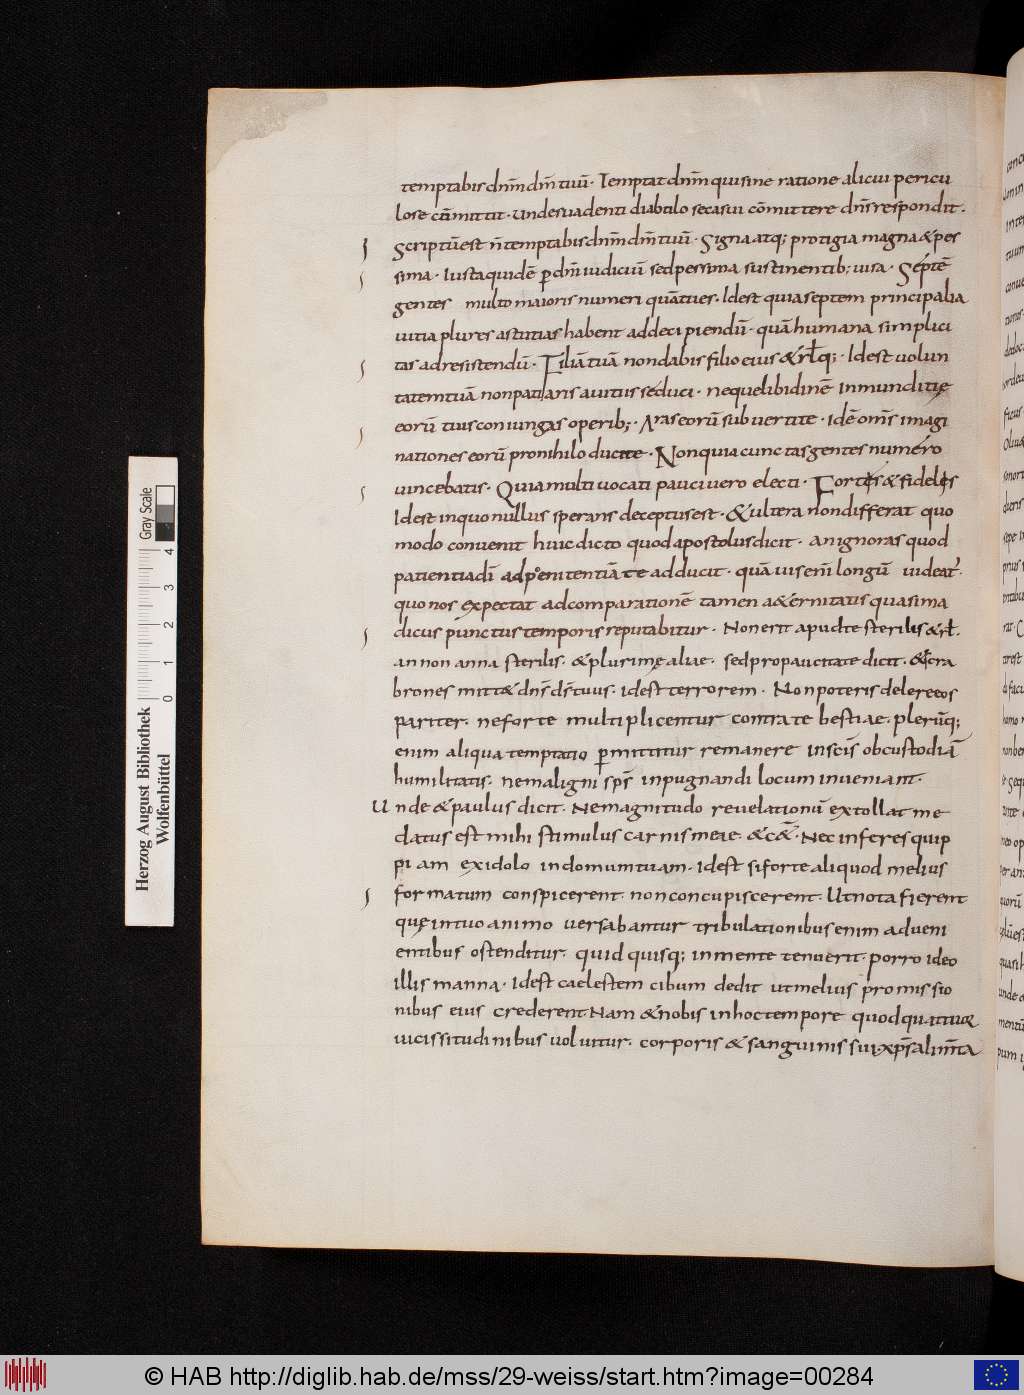 temptabis dnm̄ dm̄ tuū· Temptat dnm̄ qui sine ratione alicui pericu
lose cōmittit· unde suadenti diabolo se casui cōmittere dn̄s respondit·
Scriptū est n̄ temptabis dnm̄ dm̄ tuū· Signa atq; protigia magna & pes
sima· Iusta quidē p dm̄ iudiciū sed pessima sustinentib; uisa· Septē
gentes multo maioris numeri quā tu es· Idest quia septem principalia
uitia plures astutias habent ad decipiendū· quā humana simplici
tas ad resistendū· Filiā tuā non dabis filio eius & rłq;· Idest uolun
tatem tuā non patiaris auitiis seduci· neque libidinē inmunditię
eorū tuis coniungas operib;· Aras eorū subuertite· idē om̄s imagi
nationes eorū pro nihilo ducite· Non quia cunctas gentes numero
uincebatis· Quia multi uocati pauci uero electi· Fortes & fideles
Idest in quo nullus sperans deceptus est· & ultera non differat quo
modo conuenit huic dicto quod apostolus dicit· an ignoras quod
patientia dī ad penitentiā te adducit· quā uis enī longū uideat·
quo nos expectat ad comparationē tamen a&ernitatis quasi ma
dicus punctus temporis reputabitur· Non erit apud te sterilis & rł·
an non anna sterilis· & plurimę aliae· sed pro paucitate dicit· & cra
brones mitt& dn̄s ds̄ tuus· idest terrorem· Non poteris delere eos
pariter· ne forte multiplicentur contra te bestiae· plerūq;
enim aliqua temptatio pmittitur remanere in scīs ob custodiā
humilitatis· ne maligni sps̄ inpugnandi locum inueniant·
Unde & paulus dicit· Ne magnitudo reuelationū extollat me
datus est mihi stimulus carnis meae· & c&· Nec inferes quip
piam ex idolo in domum tuam· idest si forte aliquod melius
formatum conspicerent· non concupiscerent· Ut nota fierent
quę in tuo animo uersabantur tribulationibus enim adueni
entibus ostenditur· quid quisq; in mente tenuerit· porro ideo
illis manna· idest caelestem cibum dedit ut melius promissio
nibus eius crederent Nam & nobis in hoc tempore quod quattuor
uicissitudinibus uoluitur· corporis & sanguinis sui xps̄ alimta
Herzog August Bibliothek
Wolfenbüttel
0 1 2 3 4
Gray Scale
© HAB http://diglib.hab.de/mss/29-weiss/start.htm?image=00284